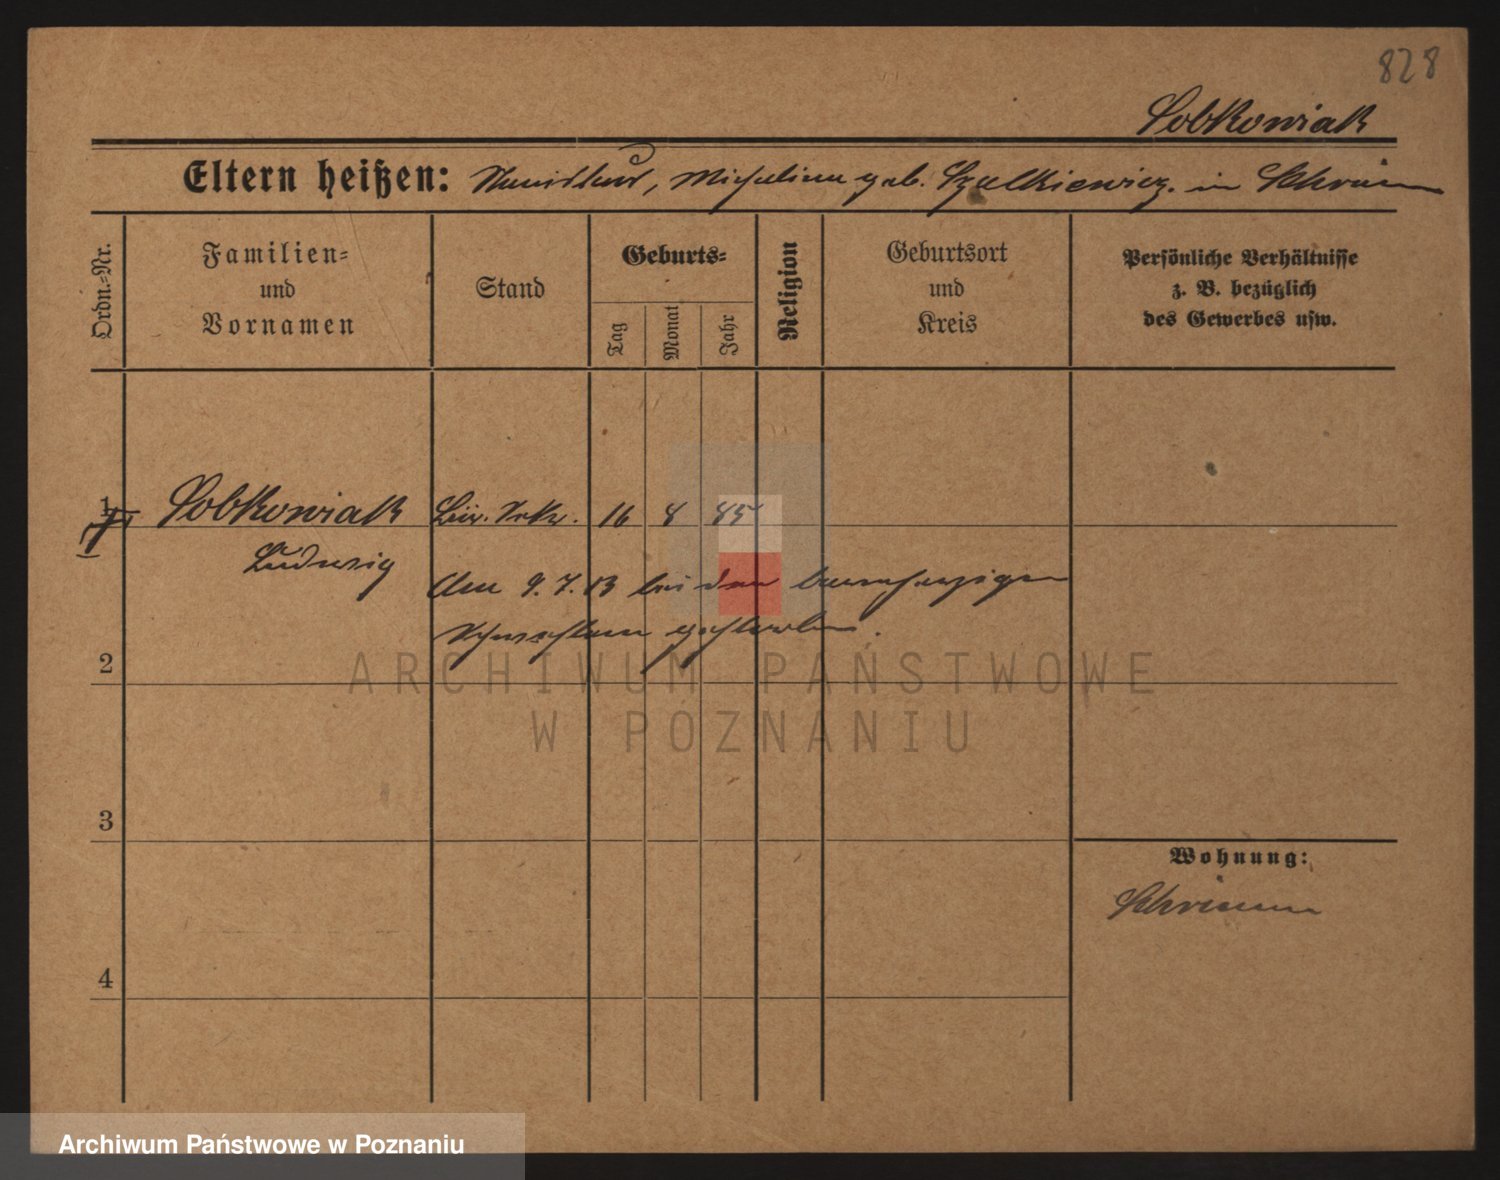 828
Sobkowiak
Eltern heißen: Stanislaus, Michalina geb. Szalkiewicz in Schrimm
Ordn.=Nr.
Familien=
und
Vornamen
Stand
Geburts=
Tag
Monat
Jahr
Religion
Geburtsort
und
Kreis
Persönliche Verhältnisse
z. B. bezüglich
des Gewerbes usw.
1 Sobkowiak 16 8 85
Ludwig
Am 9. 7. 13 bei den barmherzigen
Schwestern gestorben.
2
ARCHIWUM PAŃSTWOWE
W POZNANIU
3
Wohnung:
Schrimm
4
Archiwum Państwowe w Poznaniu